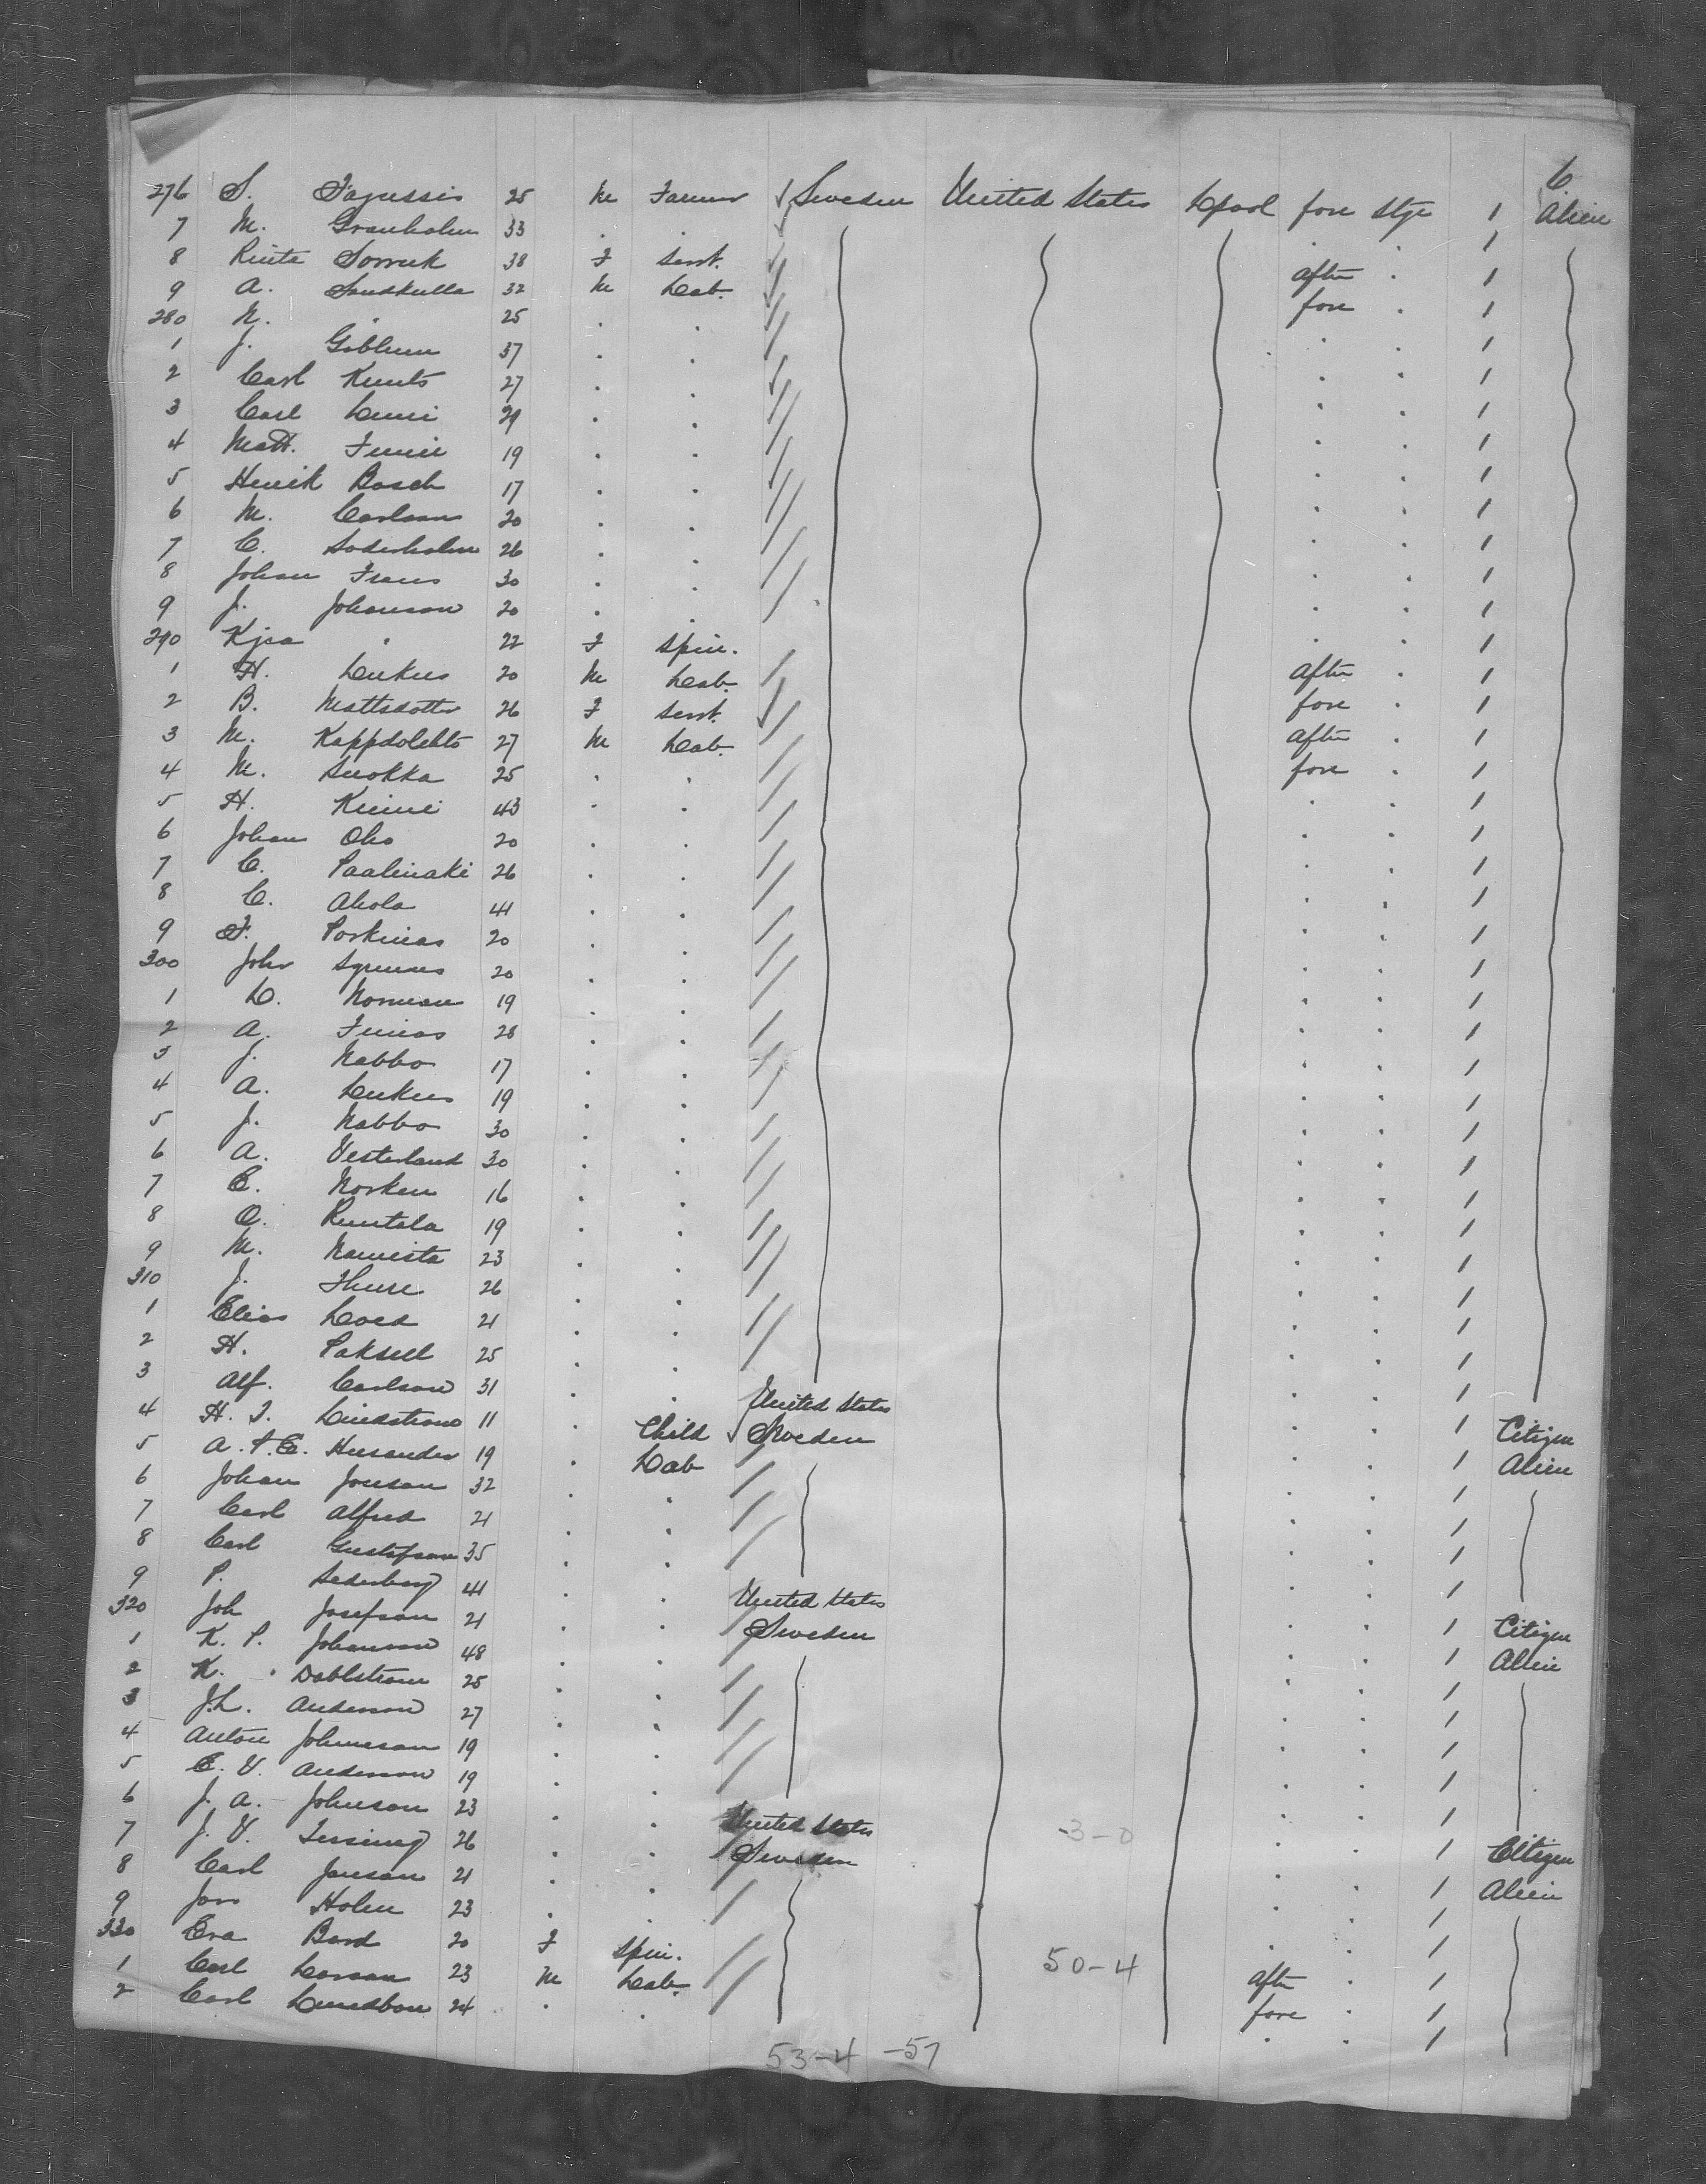 6
276 S. Fagussis 25 M Farmer Sweden United States Lpool fore stge 1 Alien
7 M. Granholm 33 . . 1
8 F Servt. after . 1
9 A. Sandkulla 32 M Lab. fore . 1
280 N. " 25 . . . . 1
1 J. Goblum 37 . . . . 1
2 Carl Kunts 27 . . . . 1
3 Carl 29 . . . . 1
4 Matt. 19 . . . . 1
5 Henrik Bosch 17 . . . . 1
6 M. Carlson 20 . . . . 1
7 C. Soderholm 26 . . . . 1
8 Johan Frans 30 . . . . 1
9 J. Johanson 20 . . . . 1
290 Kjsa " 22 F Spin. after . 1
1 H. 20 M Lab. fore . 1
2 B. Mattsdotter 26 F Servt. after . 1
3 M. Kappdolehto 27 M Lab. fore . 1
4 M. 25 . . . . 1
5 H. 43 . . . . 1
6 Johan Oho 20 . . . . 1
7 C. Paalinaki 26 . . . . 1
8 C. Ahola 41 . . . . 1
9 F. Porkinas 20 . . . . 1
300 John 20 . . . . 1
1 L. Norman 19 . . . . 1
2 A. Finnas 28 . . . . 1
3 J. Nabbo 17 . . . . 1
4 A. 19 . . . . 1
5 J. Nabbo 30 . . . . 1
6 A. Vesterlund 30 . . . . 1
7 E. Norken 16 . . . . 1
8 O. Runtala 19 . . . . 1
9 M. 23 . . . . 1
310 J. Thure 26 . . . . 1
1 Elias 21 . . . . 1
2 H. 25 . . . . 1
3 Alf. Carlson 31 . . United States . . 1 Citizen
4 H. J. Lindstrom 11 . Child Sweden . . 1 Alien
5 A. P. E. Husander 19 . Lab . . 1
6 Johan Jonson 32 . . . . 1
7 Carl Alfred 21 . . . . 1
8 Carl Gustafson 35 . . . . 1
9 P. Sederberg 41 . . United States . . 1 Citizen
320 Joh Josefson 21 . . Sweden . . 1 Alien
1 K. P. Johanson 48 . . . . 1
2 K. " Dahlstrom 25 . . . . 1
3 J.L. Anderson 27 . . . . 1
4 Anton Johneson 19 . . . . 1
5 E. V. Anderson 19 . . . . 1
6 J. A. Johnson 23 . . United States 3-0 . . 1 Citizen
7 J. V. 26 . . Sweden . . 1 Alien
8 Carl Janson 21 . . . . 1
9 Jon Holm 23 . . . . 1
330 Eva Bard 20 F Spin. 50-4 after . 1
1 Carl Larson 23 M Lab. fore . 1
2 Carl 24 . . . . 1
53-4 -57